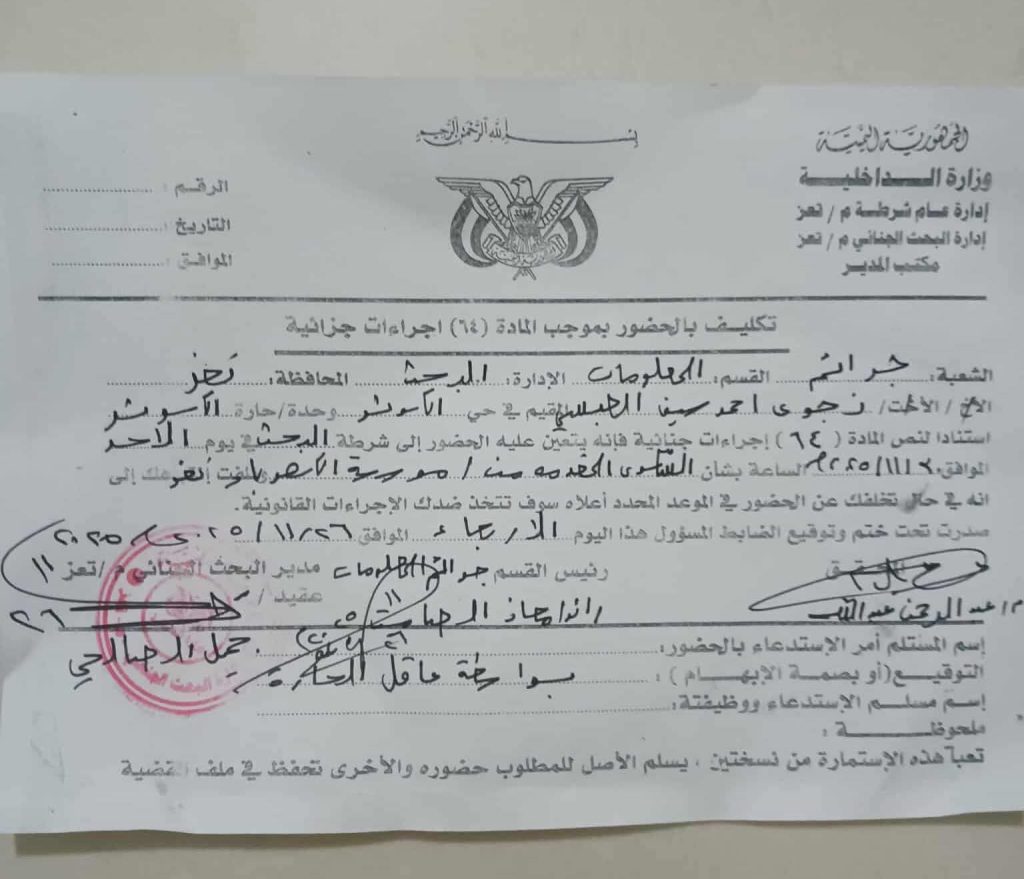 بسم الله الرحمن الرحيم
الجمهورية اليمنية
وزارة الداخلية
إدارة عام شرطة م / تعز
إدارة البحث الجنائي م / تعز
مكتب المدير
الرقم :
التاريخ :
الموافق :
تكليف بالحضور بموجب المادة (٦٤) اجراءات جزائية
الشعبة : جرائم القسم : المعلومات الإدارة : البحث المحافظة : تعز
الأخ / الأخت / نجوى احمد سيف المقيم في حي وحدة/حارة
استنادا لنص المادة ( ٦٤ ) إجراءات جنائية فإنه يتعين عليه الحضور إلى شرطة البحث في يوم الأحد
الموافق الساعة بشأن الشكوى المقدمه من /
انه في حال تخلفك عن الحضور في الموعد المحدد أعلاه سوف تتخذ ضدك الإجراءات القانونية.
صدرت تحت ختم وتوقيع الضابط المسؤول هذا اليوم الاربعاء الموافق ٢٦/١١/٢٠٢٥م
رئيس القسم جرائم المعلومات مدير البحث الجنائي م/تعز
م/ عبد الرحمن عبدالله رائد/ عقيد /
إسم المستلم أمر الإستدعاء بالحضور:
التوقيع (أو بصمة الإبهام ) : بواسطة عاقل الحارة
إسم مسلم الإستدعاء ووظيفتة:
ملحوظة :
تعبأ هذه الإستمارة من نسختين ، يسلم الأصل للمطلوب حضوره والأخرى تحفظ في ملف القضية